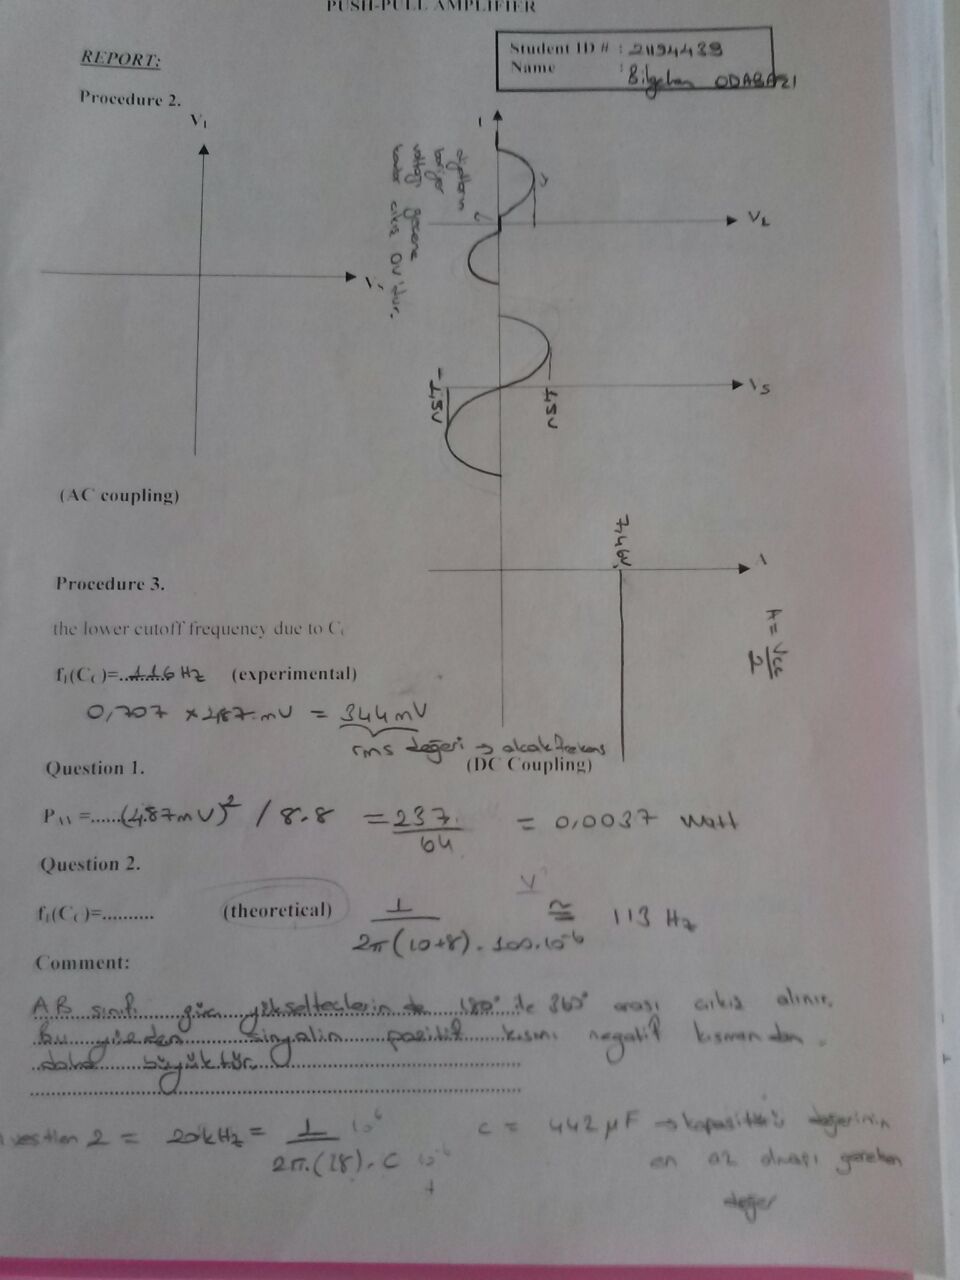 PUSH-PULL AMPLIFIER
REPORT:
Student ID # : 2494439
Name : Bilgehan ODABAŞI
Procedure 2.
V₁
t
diyotların
bariyer
voltajı geçene
kadar çıkış 0V'dur.
V_L
V_S
1,5V
-1,5V
(AC coupling)
7,4V
A
A = Vcc/2
(DC Coupling)
Procedure 3.
the lower cutoff frequency due to C_C
f₁(C_C)=..116 Hz (experimental)
0,707 × 487 mV = 344mV
rms değeri → alçak frekans
Question 1.
=......(487mV)² / 8.8 = 237/64 = 0,0037 Watt
Question 2.
f₁(C_C)=.......... (theoretical) 1/2π(10+8).100.10⁻⁶ ≅ 113 Hz
Comment:
AB sınıfı güç yükselteçlerin de 180° ile 360° arası çıkış alınır.
bu yüzden sinyalin pozitif kısmı negatif kısmından
daha büyüktür.
Question 2 = 20kHz = 1/2π.(18).C 10⁶ 10⁻⁶
C = 442 µF → kapasitörü değerinin
en az olması gereken
değer